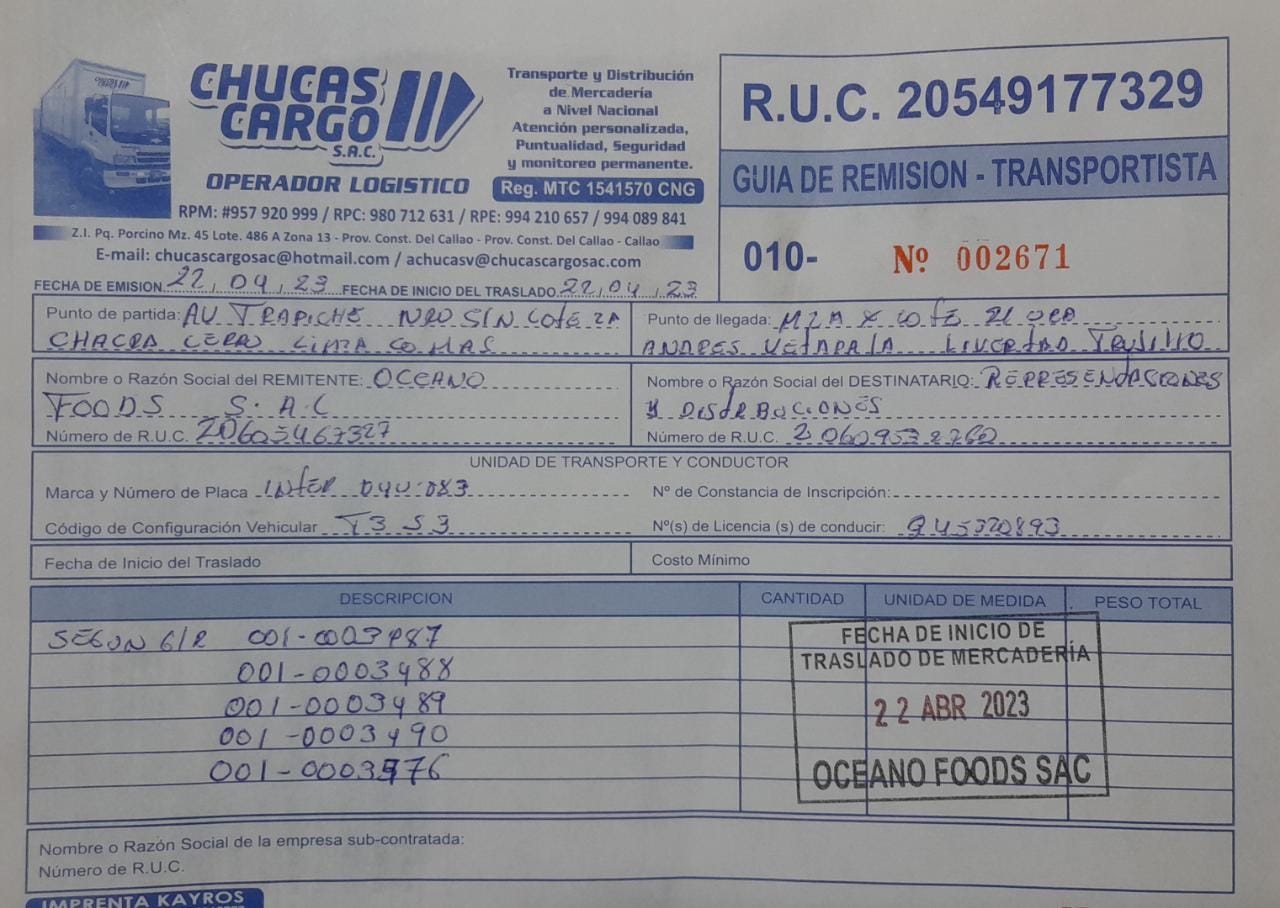 CHUCAS CARGO S.A.C.
OPERADOR LOGISTICO
Transporte y Distribución
de Mercadería
a Nivel Nacional
Atención personalizada,
Puntualidad, Seguridad
y monitoreo permanente.
Reg. MTC 1541570 CNG
RPM: #957 920 999 / RPC: 980 712 631 / RPE: 994 210 657 / 994 089 841
Z.I. Pq. Porcino Mz. 45 Lote. 486 A Zona 13 - Prov. Const. Del Callao - Prov. Const. Del Callao - Callao
E-mail: chucascargosac@hotmail.com / achucasv@chucascargosac.com
R.U.C. 20549177329
GUIA DE REMISION - TRANSPORTISTA
010- Nº 002671
FECHA DE EMISION 22, 04, 23 FECHA DE INICIO DEL TRASLADO 22, 04, 23
Punto de partida: AV TRAPICHE NRO SIN LOTE
CHACRA CERRO LIMA COMAS
Punto de llegada: MZA X LOTE
ANDRES LIVERTAD TRUJILLO
Nombre o Razón Social del REMITENTE: OCEANO
FOODS S.A.C
Número de R.U.C. 20603467327
Nombre o Razón Social del DESTINATARIO: REPRESENDACIONES
Y DISTRBUCIONES
Número de R.U.C.
UNIDAD DE TRANSPORTE Y CONDUCTOR
Marca y Número de Placa INTER
Nº de Constancia de Inscripción:
Código de Configuración Vehicular T3 S3
Nº(s) de Licencia (s) de conducir: Q45320893
Fecha de Inicio del Traslado
Costo Mínimo
DESCRIPCION CANTIDAD UNIDAD DE MEDIDA PESO TOTAL
SEGUN G/R 001-0003487
001-0003488
001-0003489
001-0003490
001-0003476
FECHA DE INICIO DE
TRASLADO DE MERCADERÍA
22 ABR 2023
OCEANO FOODS SAC
Nombre o Razón Social de la empresa sub-contratada:
Número de R.U.C.
IMPRENTA KAYROS